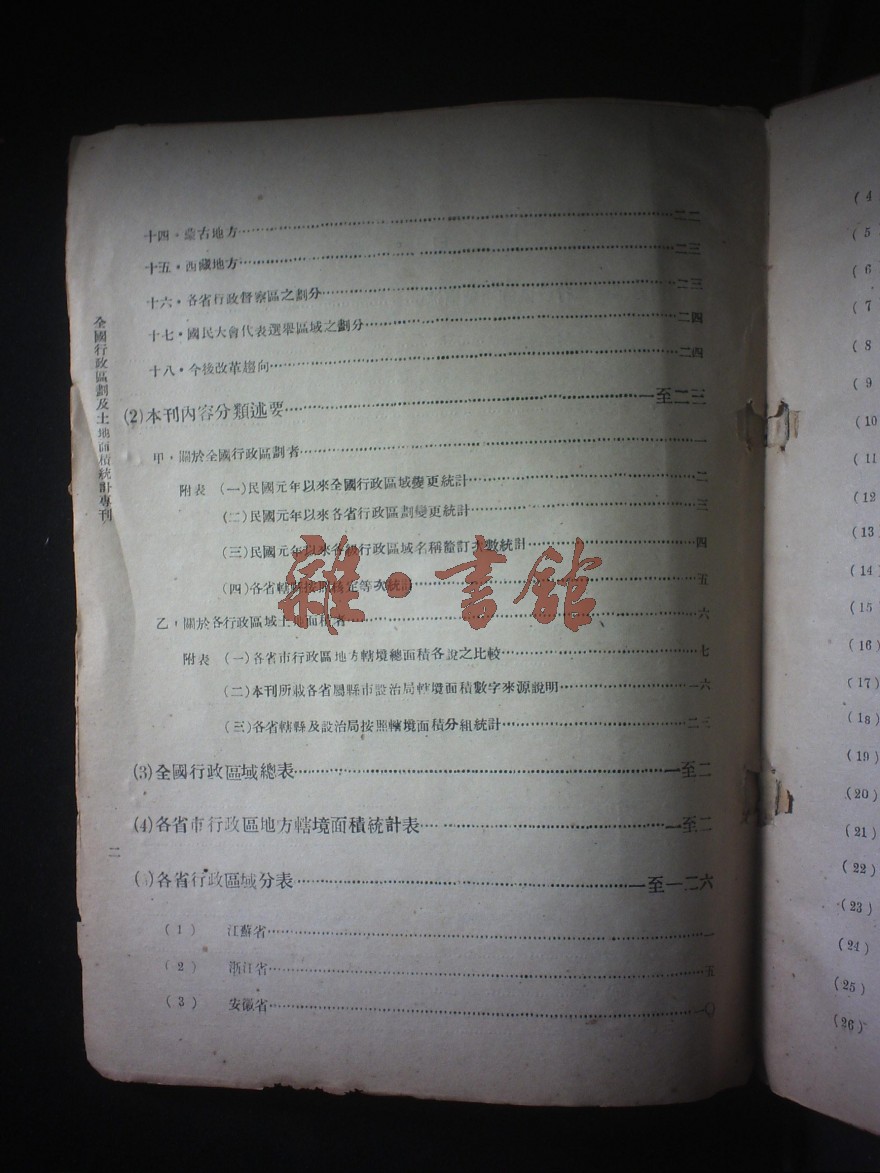 十四．蒙古地方……二二
十五．西藏地方……二三
十六．各省行政督察區之劃分……二三
十七．國民大會代表選舉區域之劃分……二四
十八．今後改革趨向……二四
(2)本刊內容分類述要……一至二三
甲，關於全國行政區劃者……一
附表 (一)民國元年以來全國行政區域變更統計……二
(二)民國元年以來各省行政區劃變更統計……三
(三)民國元年以來各級行政區域名稱釐訂次數統計……四
(四)各省轄縣按照核定等次統計……五
乙，關於各行政區域土地面積者……六
附表 (一)各省市行政區地方轄境總面積各說之比較……七
(二)本刊所載各省屬縣市設治局轄境面積數字來源說明……一六
(三)各省轄縣及設治局按照轄境面積分組統計……二三
(3)全國行政區域總表……一至二
(4)各省市行政區地方轄境面積統計表……一至二
(5)各省行政區域分表……一至一二六
(1) 江蘇省……一
(2) 浙江省……五
(3) 安徽省……一〇
全國行政區劃及土地面積統計專刊
二
雜·書館
(4
(5
(6
(7
(8
(9
(10
(11
(12
(13
(14
(15
(16)
(17)
(18)
(19)
(20)
(21)
(22)
(23)
(24)
(25)
(26)